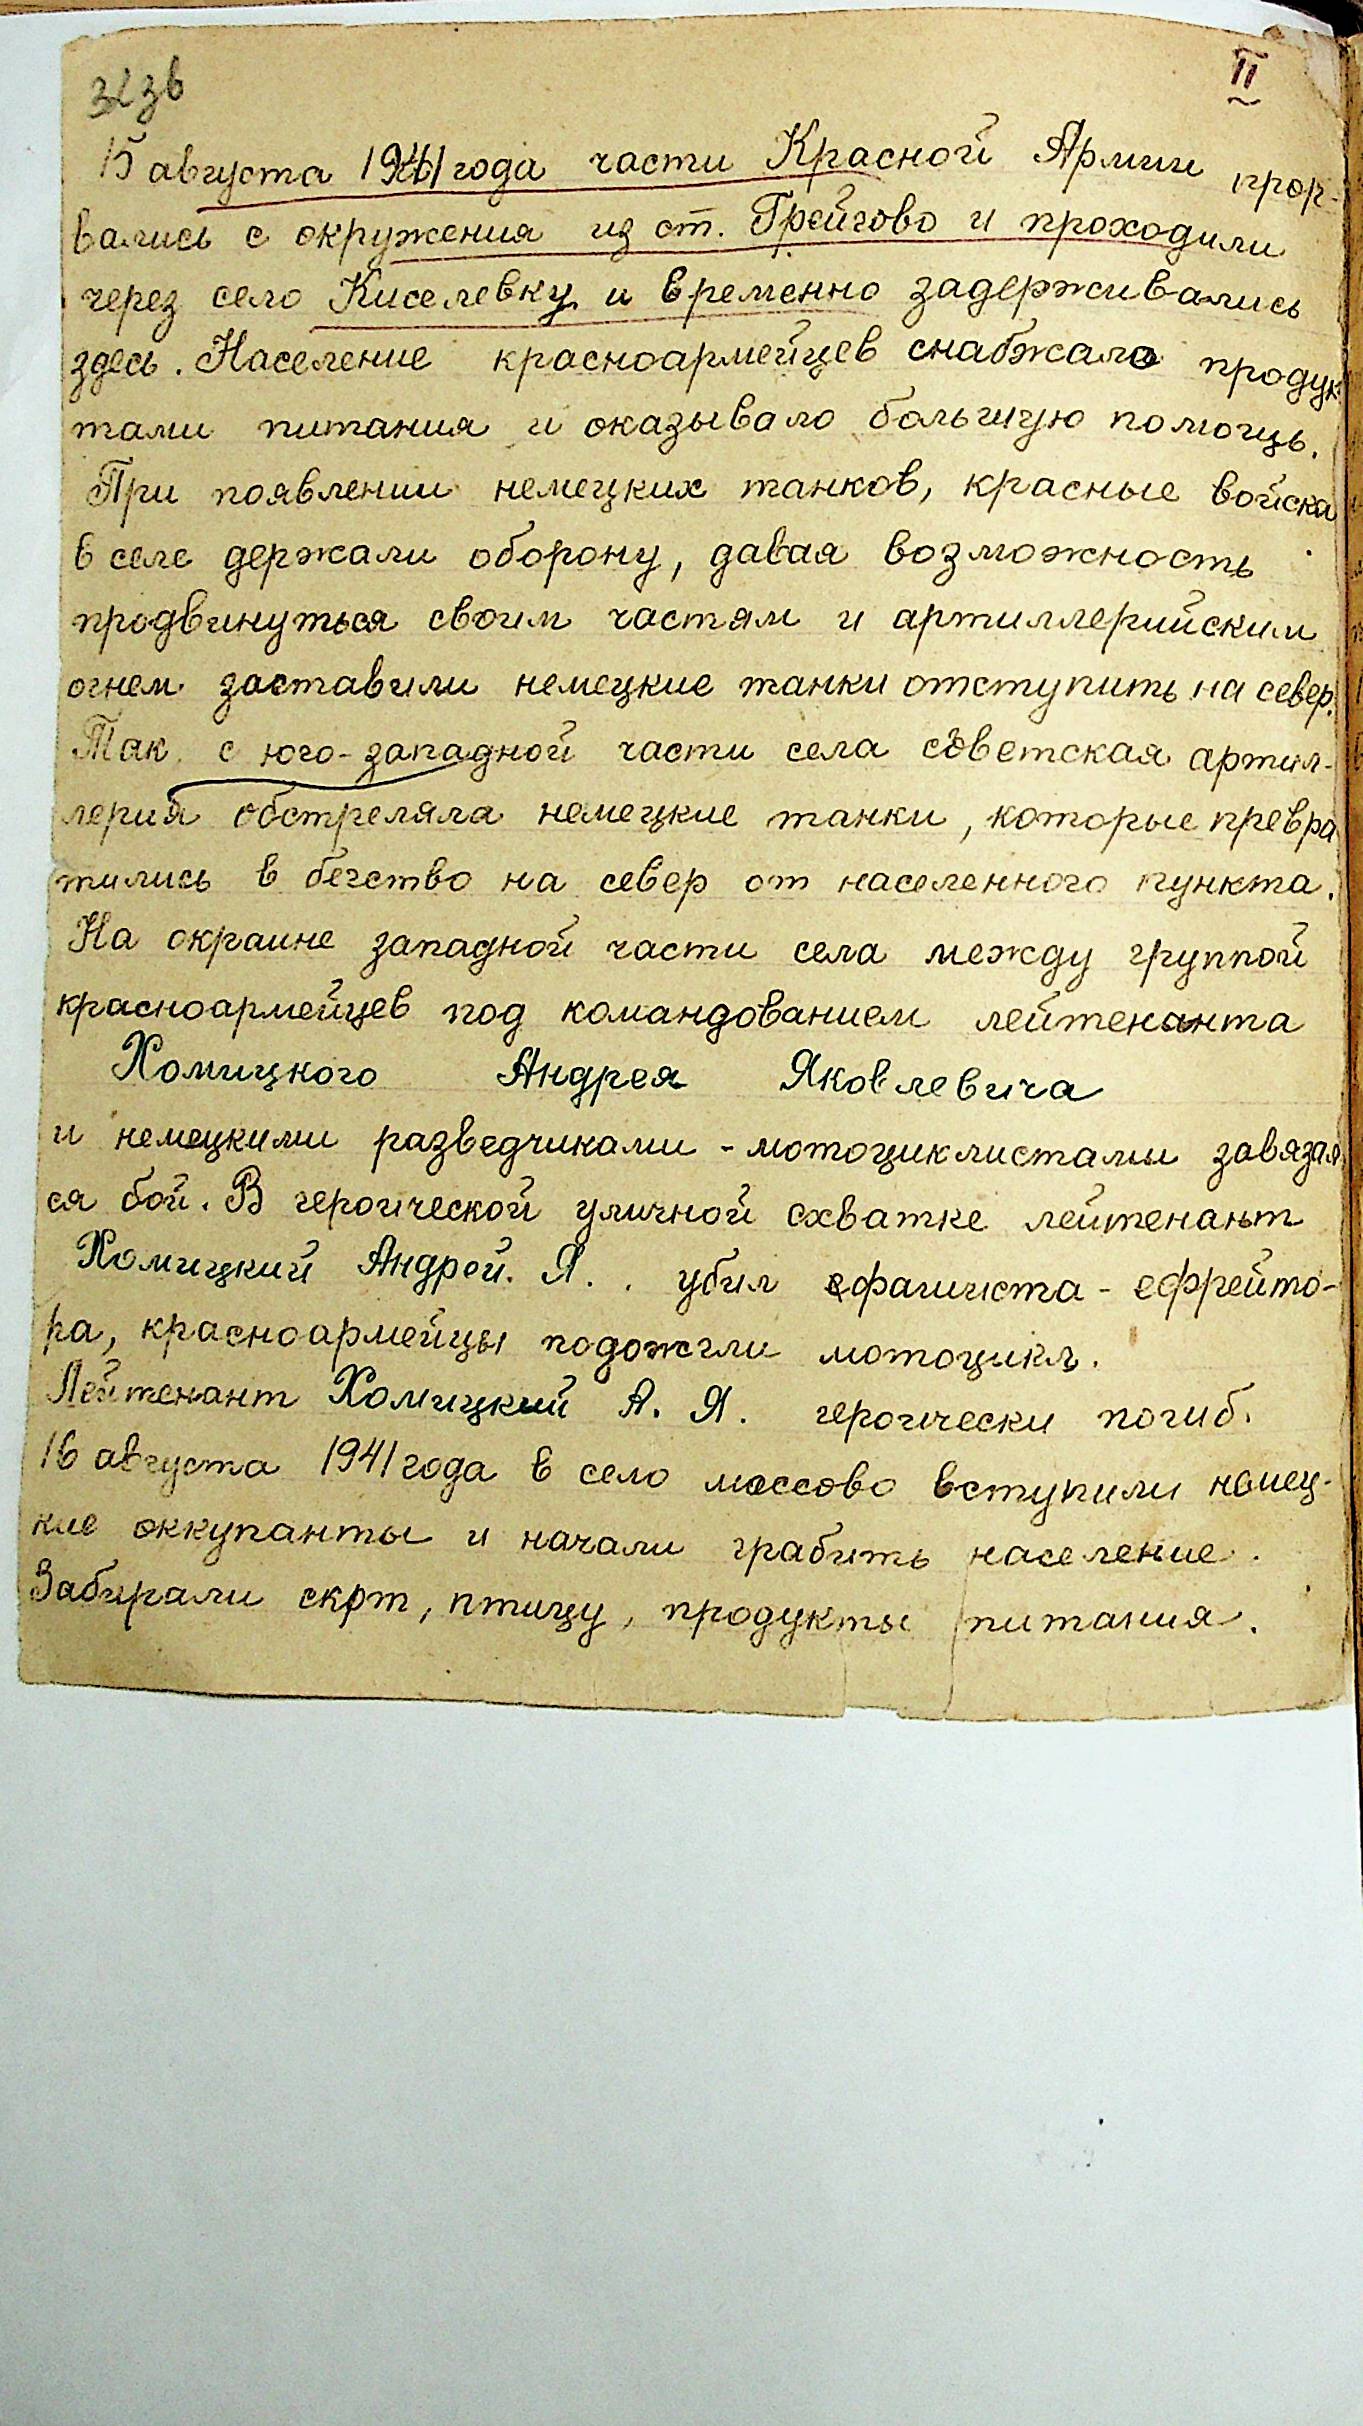 II
15 августа 1941 года части Красной Армии прор-
вались с окружения из ст. Грейгово и проходили
через село Киселевку и временно задерживались
здесь. Население красноармейцев снабжало продук-
тами питания и оказывало большую помощь.
При появлении немецких танков, красные войска
в селе держали оборону, давая возможность
продвинуться своим частям и артиллерийским
огнем заставили немецкие танки отступить на север.
Так с юго-западной части села советская артил-
лерия обстреляла немецкие танки, которые превра
тились в бегство на север от населенного пункта.
На окраине западной части села между группой
красноармейцев под командованием лейтенанта
Хомицкого Андрея Яковлевича
и немецкими разведчиками - мотоциклистами завязал
ся бой. В героической уличной схватке лейтенант
Хомицкий Андрей. Я. убил фашиста - ефрейто-
ра, красноармейцы подожгли мотоцикл.
Лейтенант Хомицкий А. Я. героически погиб.
16 августа 1941 года в село массово вступили немец-
кие оккупанты и начали грабить население.
Забирали скот, птицу, продукты питания.